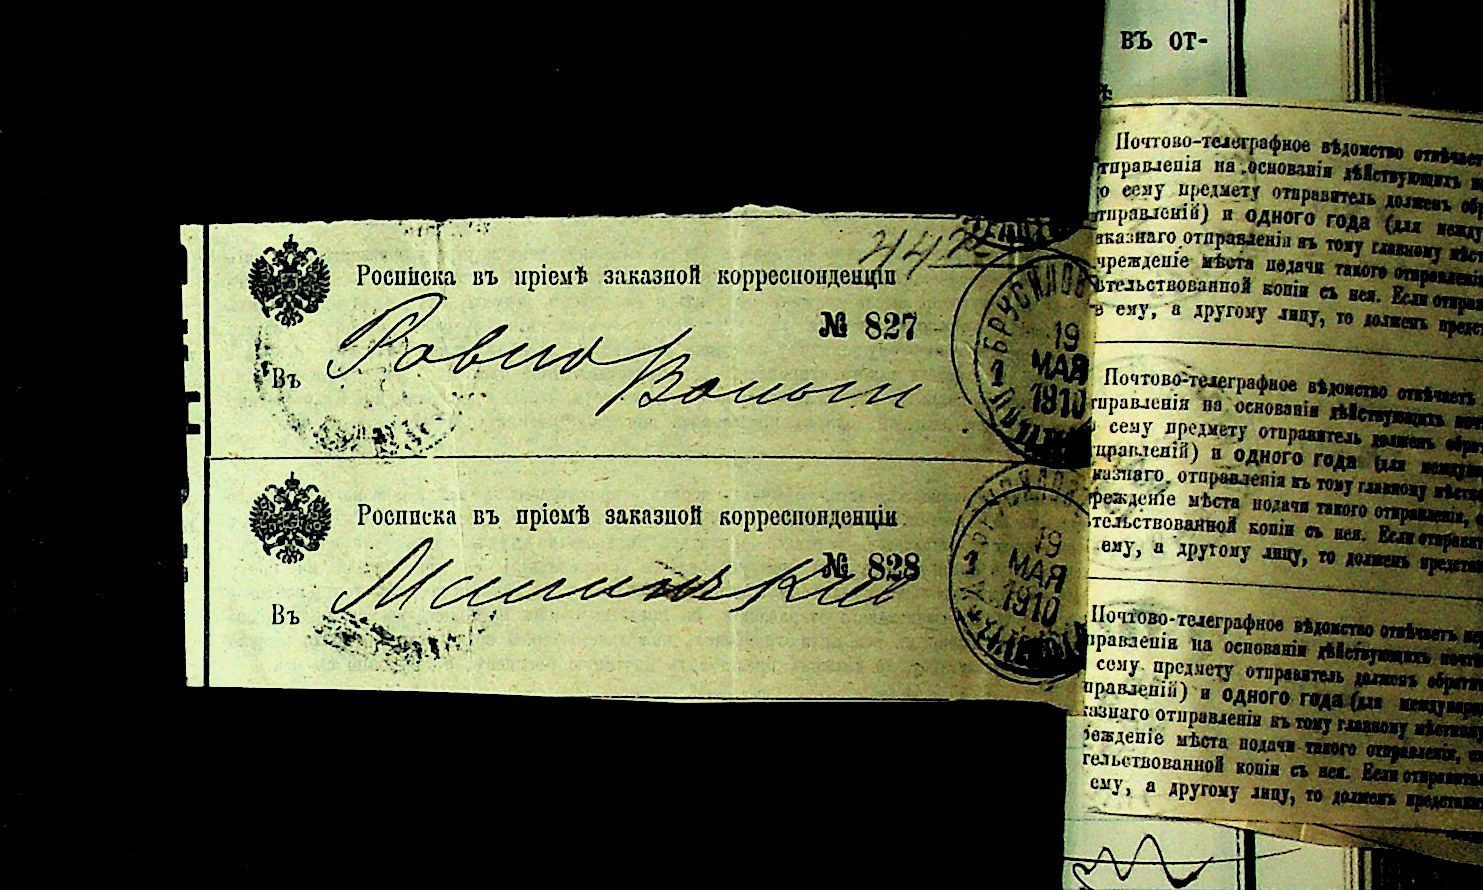 въ от-
Росписка въ пріемѣ заказной корреспонденціи
№ 827
Въ Ровно Волын
БРУСИЛОВ
1
19
МАЯ
1910
Росписка въ пріемѣ заказной корреспонденціи
№ 828
Въ
1
19
МАЯ
1910
Почтово-телеграфное вѣдомство отвѣчает
тправленія на основаніи дѣйствующихъ
сему предмету отправитель долженъ
тправленій) и одного года (для между
аказнаго отправленія къ тому главному мѣст
чрежденіе мѣста подачи такого отправлен
тельствованной копіи съ нея. Если отпра
ему, а другому лицу, то долженъ предст
Почтово-телеграфное вѣдомство отвѣчаетъ
тправленія на основаніи дѣйствующихъ
сему предмету отправитель долженъ обра
правленій) и одного года (для между
казнаго отправленія къ тому главному мѣст
режденіе мѣста подачи такого отправленія,
тельствованной копіи съ нея. Если отправи
ему, а другому лицу, то долженъ предста
Почтово-телеграфное вѣдомство отвѣчаетъ
правленія на основаніи дѣйствующихъ
сему предмету отправитель долженъ обрат
правленій) и одного года (для междунар
казнаго отправленія къ тому главному мѣстному
режденіе мѣста подачи такого отправленія,
тельствованной копіи съ нея. Если отправит
ему, а другому лицу, то долженъ представи